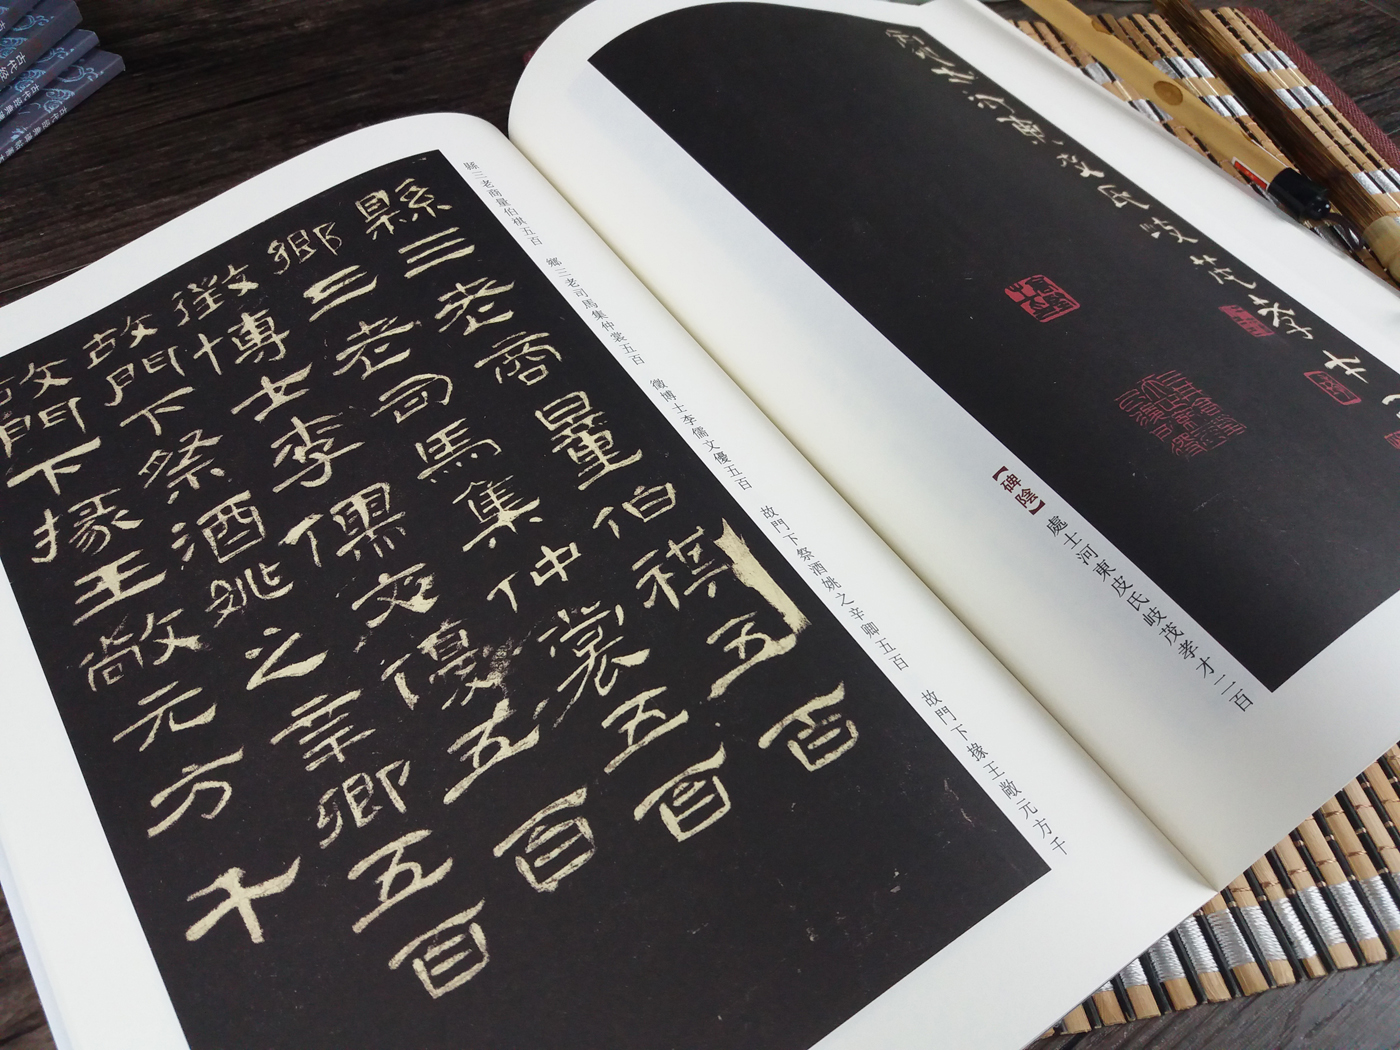 處士河東皮氏岐茂孝才
【碑陰】 處士河東皮氏岐茂孝才二百
縣三老商量伯祺五百 鄉三老司馬集仲裳五百 徵博士李儒文優五百 故門下祭酒姚之辛卿五百 故門下掾王敞元方千
縣三老商量伯祺五百
鄉三老司馬集仲裳五百
徵博士李儒文優五百
故門下祭酒姚之辛卿五百
故門下掾王敞元方千
古代经
古代经典碑帖